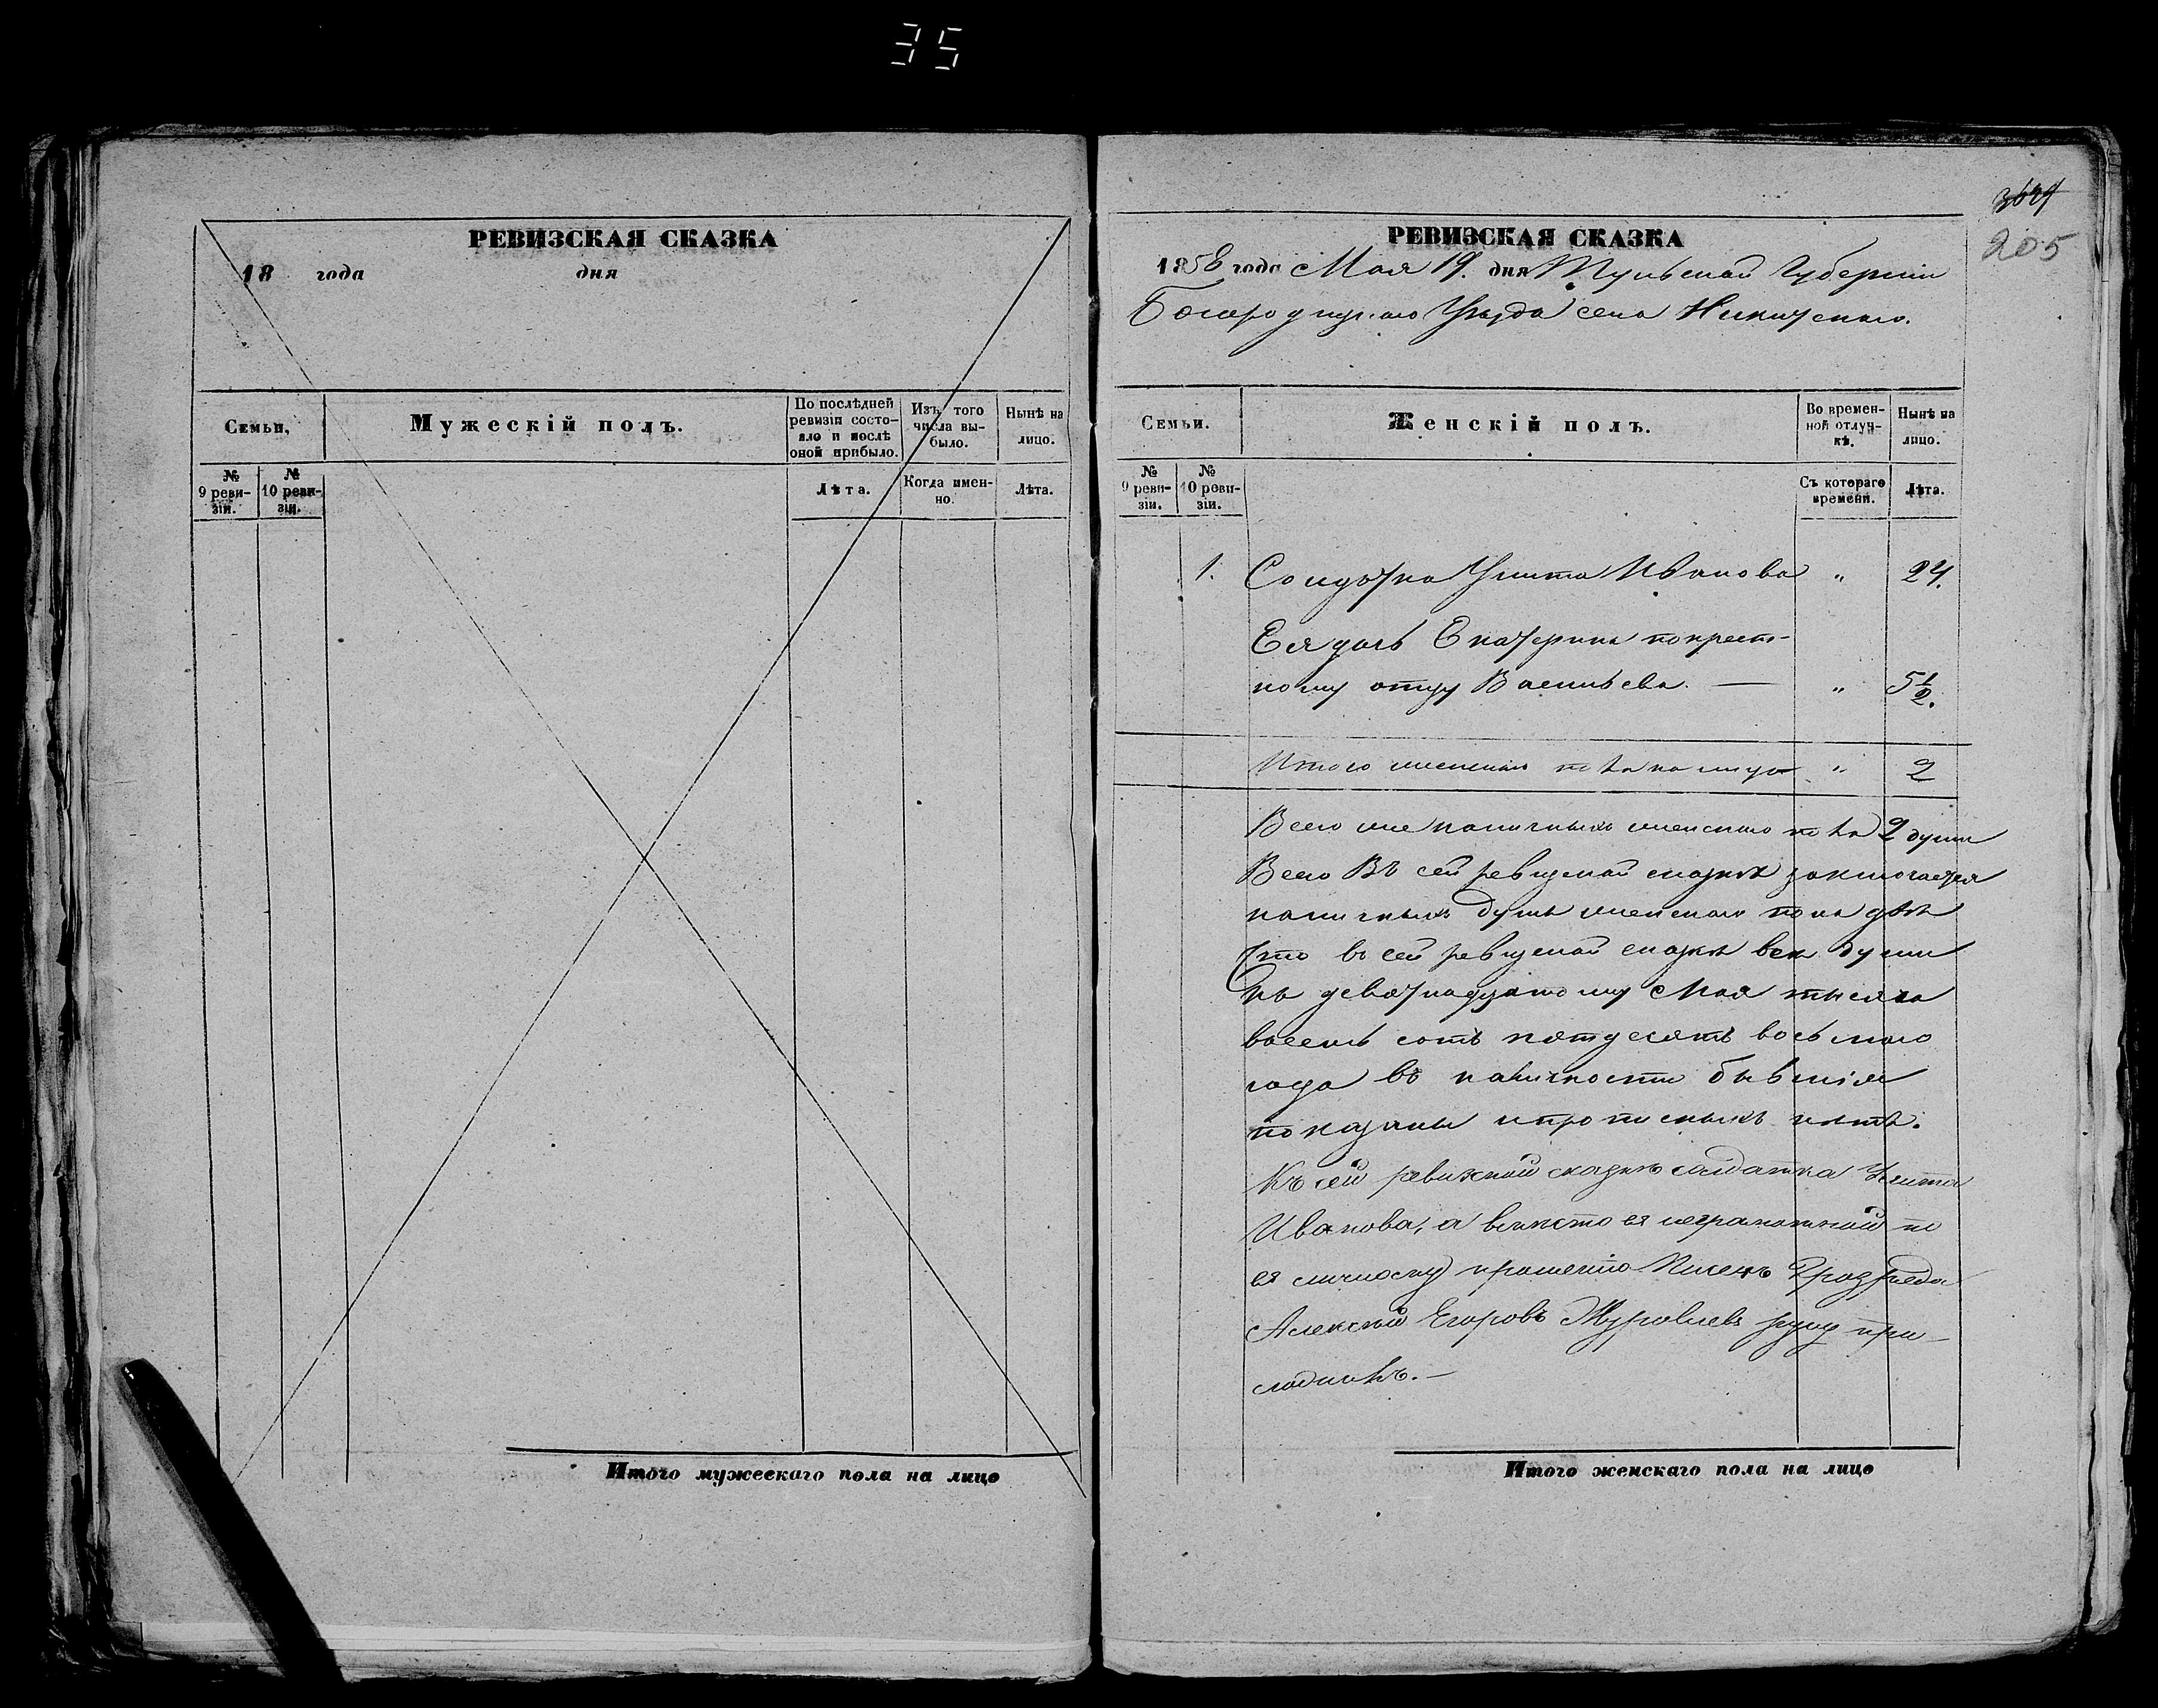 35
РЕВИЗСКАЯ СКАЗКА
18 года дня
Семьи.
Мужескій полъ.
По послѣдней ревизіи состояло и послѣ оной прибыло.
Изъ того числа выбыло.
Нынѣ на лицо.
№ 9 ревизіи.
№ 10 ревизіи.
Лѣта.
Когда именно.
Лѣта.
Итого мужескаго пола на лицо
205
РЕВИЗСКАЯ СКАЗКА
1858 года Мая 19. дня Тульской Губерніи
Богородицкаго Уѣзда села Никитскаго.
Семьи.
Женскій полъ.
Во временной отлучкѣ.
Нынѣ на лицо.
№ 9 ревизіи.
№ 10 ревизіи.
Съ котораго времени.
Лѣта.
1. Солдатка Улита Иванова " 24.
Ея дочь Екатерина по крест-
ному отцу Васильева. — " 5 1/2.
Итого женскаго пола на лицо " 2
Всего же наличныхъ женскаго пола 2 души
Всего въ сей ревизской сказкѣ заключается
наличныхъ душъ женскаго пола двѣ
Что въ сей ревизской сказкѣ всѣ души
къ девятнадцатому Мая тысяча
восемь сотъ пятдесятъ восьмаго
года въ наличности бывшія
показаны и прописныхъ нѣтъ.
Къ сей ревизской сказкѣ салдатка Улита
Иванова, а вмѣсто ея неграмотной по
ея личному прошенію Писецъ 2 разряда
Алексѣй Егоровъ Журавлевъ руку при-
ложилъ. —
Итого женскаго пола на лицо